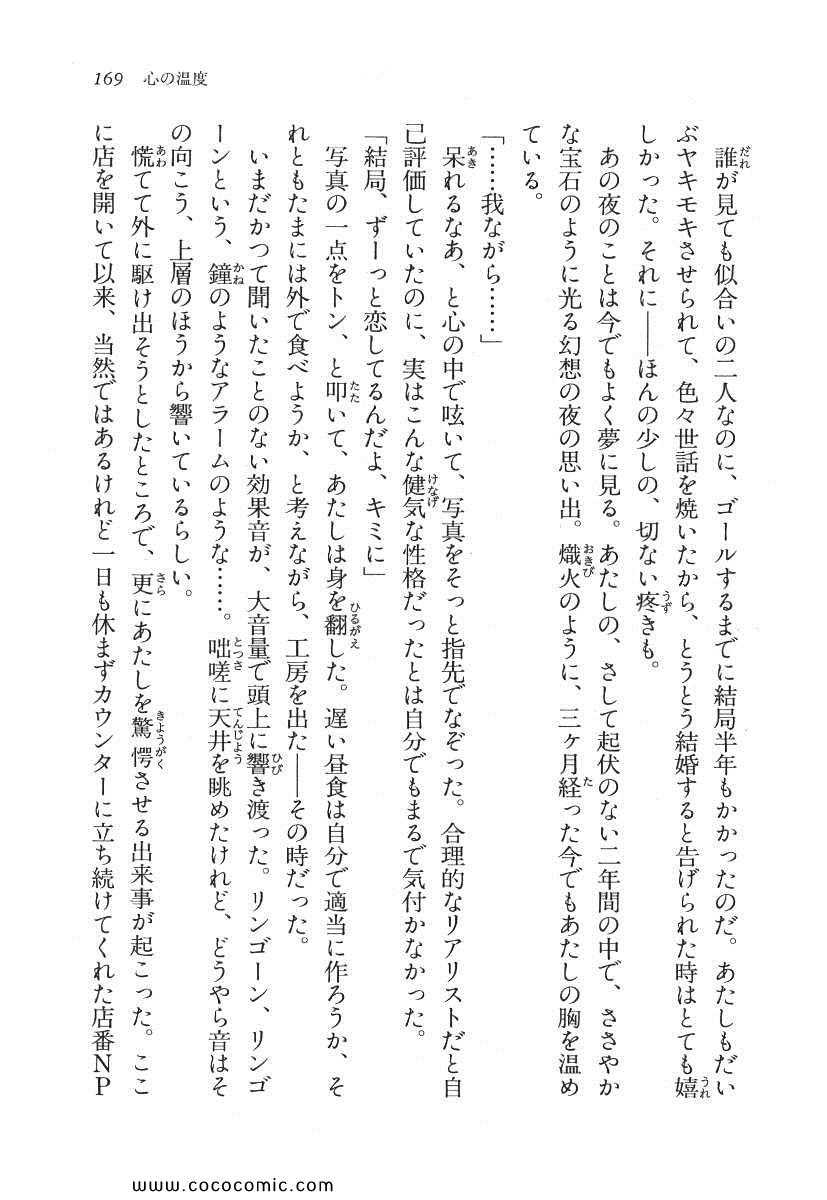 169 心の温度
誰が見ても似合いの二人なのに、ゴールするまでに結局半年もかかったのだ。あたしもだい
ぶヤキモキさせられて、色々世話を焼いたから、とうとう結婚すると告げられた時はとても嬉
しかった。それに――ほんの少しの、切ない疼きも。
あの夜のことは今でもよく夢に見る。あたしの、さして起伏のない二年間の中で、ささやか
な宝石のように光る幻想の夜の思い出。熾火のように、三ヶ月経った今でもあたしの胸を温め
ている。
「……我ながら……」
呆れるなあ、と心の中で呟いて、写真をそっと指先でなぞった。合理的なリアリストだと自
己評価していたのに、実はこんな健気な性格だったとは自分でもまるで気付かなかった。
「結局、ずーっと恋してるんだよ、キミに」
写真の一点をトン、と叩いて、あたしは身を翻した。遅い昼食は自分で適当に作ろうか、そ
れともたまには外で食べようか、と考えながら、工房を出た――その時だった。
いまだかつて聞いたことのない効果音が、大音量で頭上に響き渡った。リンゴーン、リンゴ
ーンという、鐘のようなアラームのような……。咄嗟に天井を眺めたけれど、どうやら音はそ
の向こう、上層のほうから響いているらしい。
慌てて外に駆け出そうとしたところで、更にあたしを驚愕させる出来事が起こった。ここ
に店を開いて以来、当然ではあるけれど一日も休まずカウンターに立ち続けてくれた店番ＮＰ
www.cococomic.com